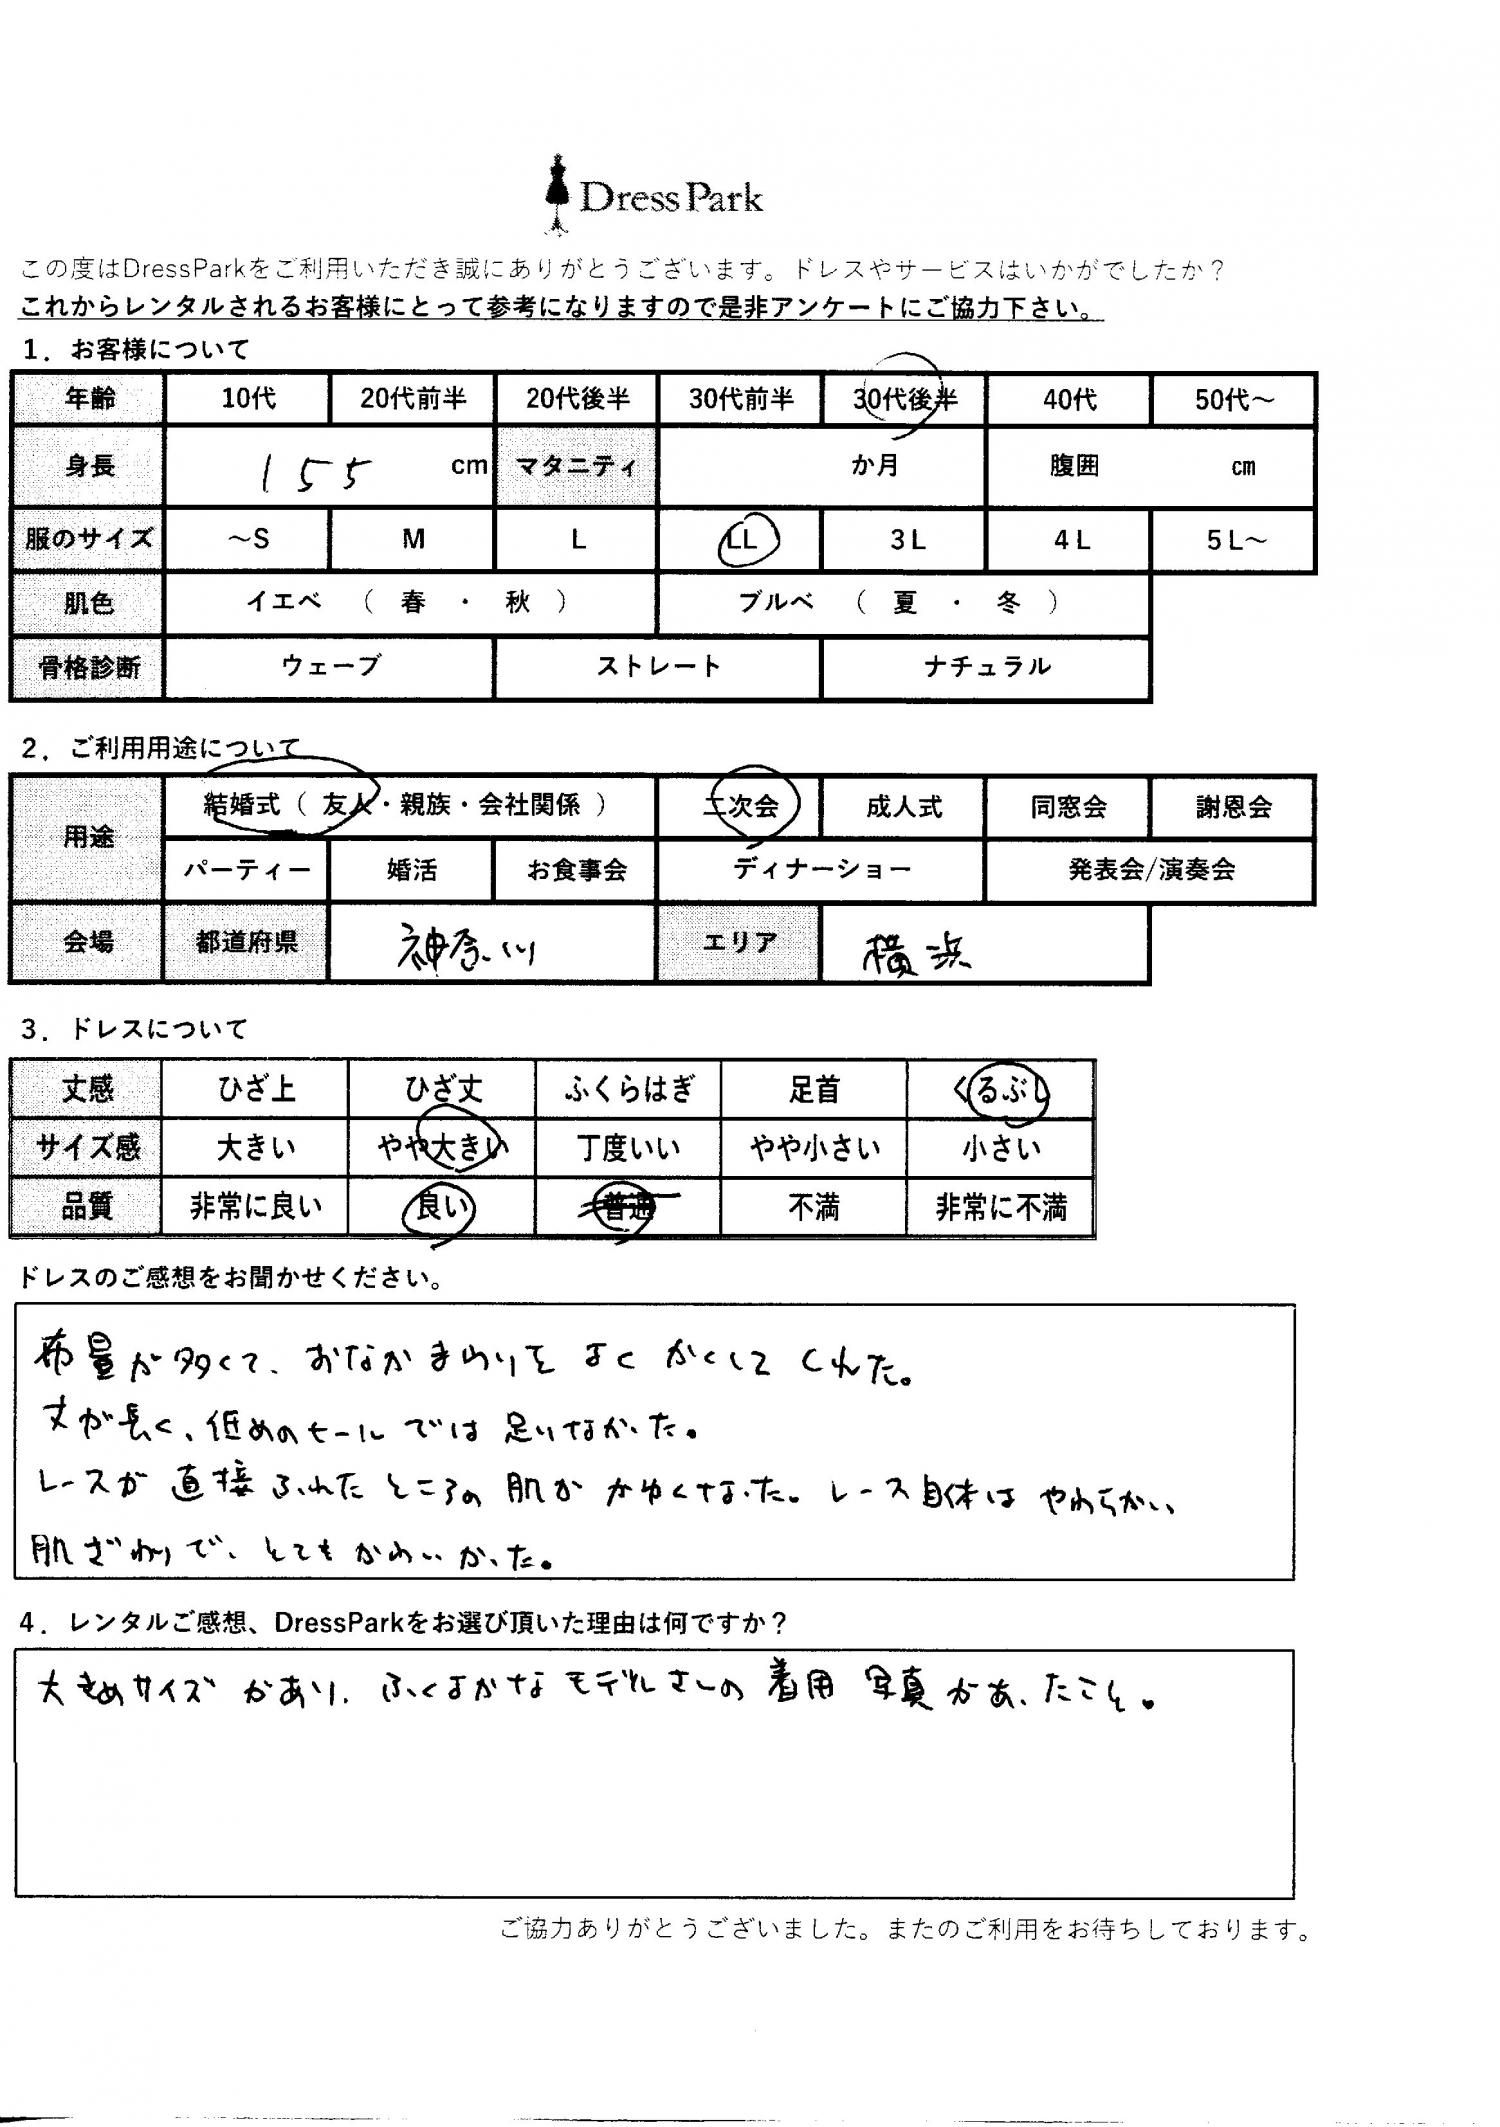 DressPark
この度はDressParkをご利用いただき誠にありがとうございます。ドレスやサービスはいかがでしたか？
これからレンタルされるお客様にとって参考になりますので是非アンケートにご協力下さい。
1．お客様について
年齢 10代 20代前半 20代後半 30代前半 30代後半 40代 50代～
身長 155 cm マタニティ か月 腹囲 cm
服のサイズ ～S M L LL 3L 4L 5L～
肌色 イエベ （ 春 ・ 秋 ） ブルベ （ 夏 ・ 冬 ）
骨格診断 ウェーブ ストレート ナチュラル
2．ご利用用途について
用途 結婚式（ 友人・親族・会社関係 ） 二次会 成人式 同窓会 謝恩会
パーティー 婚活 お食事会 ディナーショー 発表会/演奏会
会場 都道府県 神奈川 エリア 横浜
3．ドレスについて
丈感 ひざ上 ひざ丈 ふくらはぎ 足首 くるぶし
サイズ感 大きい やや大きい 丁度いい やや小さい 小さい
品質 非常に良い 良い 普通 不満 非常に不満
ドレスのご感想をお聞かせください。
布量が多くて、おなかまわりをよくかくしてくれた。
丈が長く、低めのヒールでは足りなかった。
レースが直接ふれたところの肌がかゆくなった。レース自体はやわらかい
肌ざわりで、とてもかわいかった。
4．レンタルご感想、DressParkをお選び頂いた理由は何ですか？
大きめサイズがあり、ふくよかなモデルさんの着用写真があったこと。
ご協力ありがとうございました。またのご利用をお待ちしております。